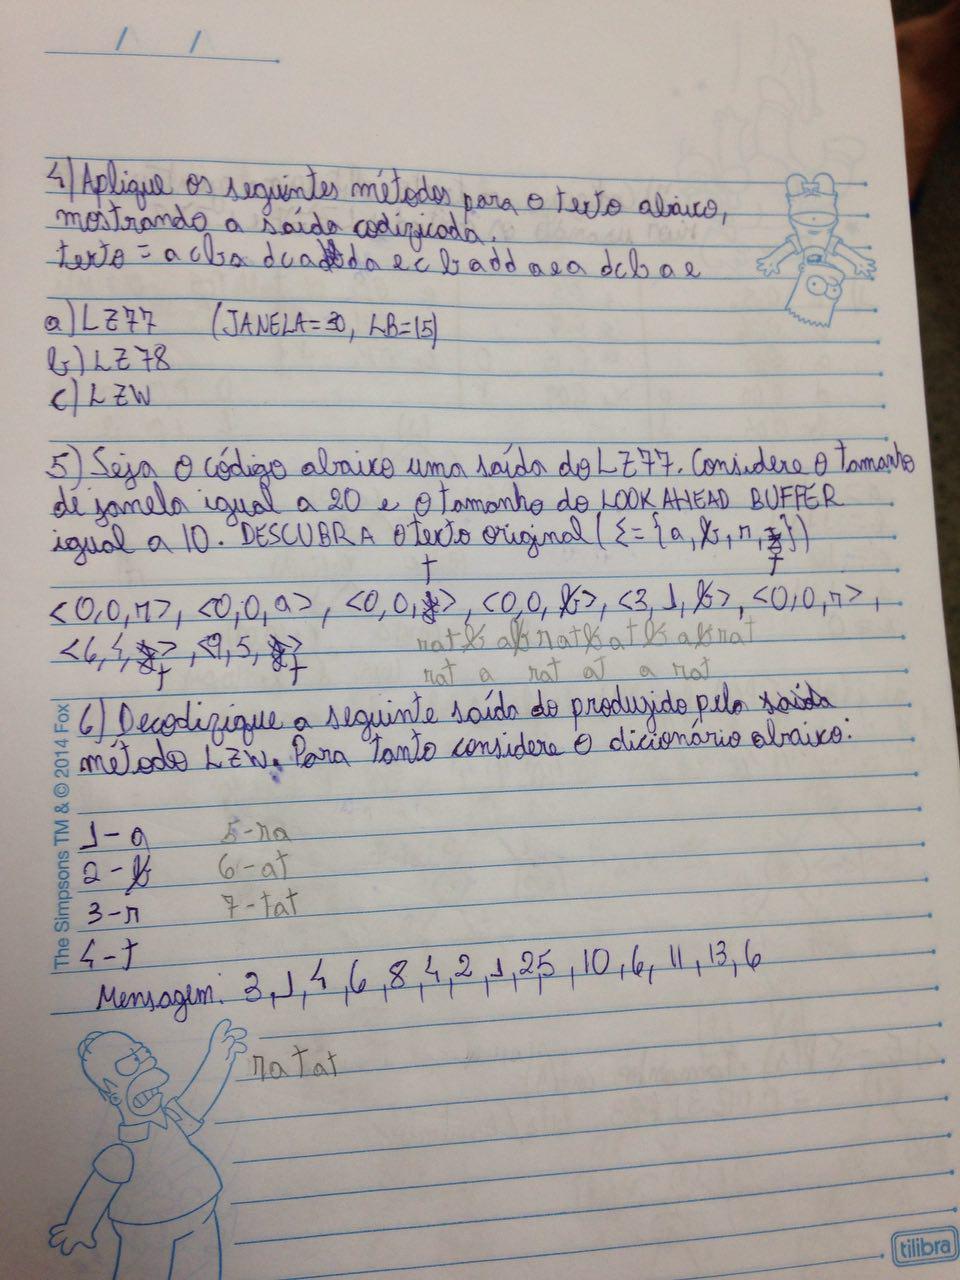 4) Aplique os seguintes métodos para o texto abaixo,
mostrando a saída codificada.
texto = a cba dcad da ec badd aea dcb a e
a) LZ77 (JANELA=30, LB=15)
b) LZ78
c) LZW
5) Seja o código abaixo uma saída do LZ77. Considere o tamanho
de janela igual a 20 e o tamanho do LOOK AHEAD BUFFER
igual a 10. DESCUBRA o texto original (Σ={a, b, r, t})
<0,0,r>, <0,0,a>, <0,0,t>, <0,0,b>, <3,1,b>, <0,0,r>,
<6,4,t>, <9,5,t> ratbabratbatbabrat
rat a rat at a rat
6) Decodifique a seguinte saída do produzido pelo saída
método LZW. Para tanto considere o dicionário abaixo:
1-a 5-ra
2-b 6-at
3-r 7-tat
4-t
Mensagem: 3,1,4,6,8,4,2,1,2,5,10,6,11,13,6
ratat
The Simpsons TM & © 2014 Fox
tilibra